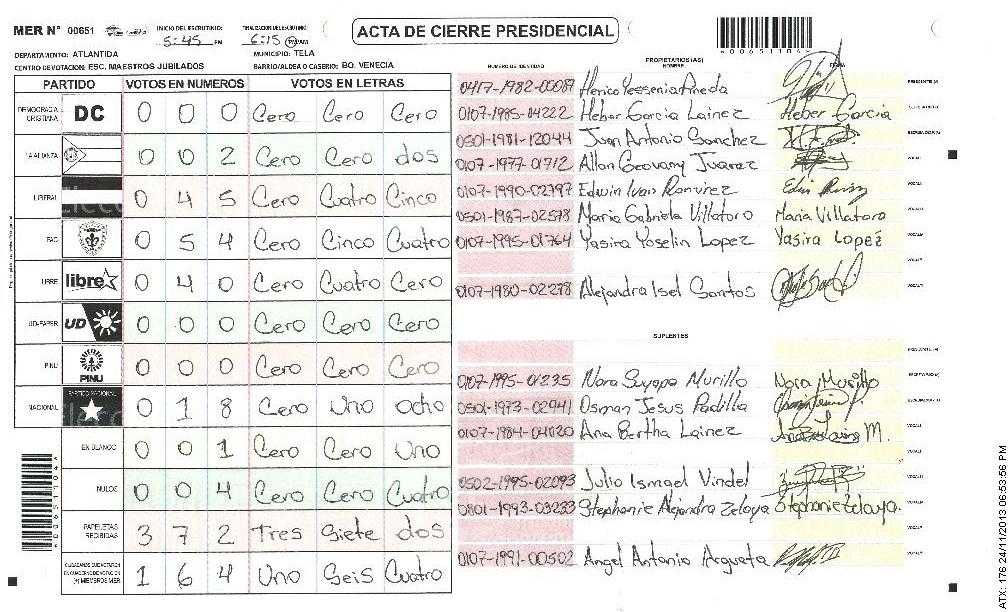 MER N° 00651
INICIO DEL ESCRUTINIO:
5:45 PM
FINALIZACION DEL ESCRUTINIO:
6:15 PM/AM
ACTA DE CIERRE PRESIDENCIAL
00651104
DEPARTAMENTO: ATLANTIDA
MUNICIPIO: TELA
CENTRO DE VOTACION: ESC. MAESTROS JUBILADOS
BARRIO/ALDEA O CASERIO: BO. VENECIA
PARTIDO VOTOS EN NUMEROS VOTOS EN LETRAS
DEMOCRACIA CRISTIANA DC 0 0 0 Cero Cero Cero
LA ALIANZA 0 0 2 Cero Cero dos
LIBERAL 0 4 5 Cero Cuatro Cinco
PAC 0 5 4 Cero Cinco Cuatro
LIBRE libre 0 4 0 Cero Cuatro Cero
UD-FAPER UD 0 0 0 Cero Cero Cero
PINU PINU 0 0 0 Cero Cero Cero
NACIONAL PARTIDO NACIONAL 0 1 8 Cero Uno Ocho
EN BLANCO 0 0 1 Cero Cero Uno
NULOS 0 0 4 Cero Cero Cuatro
PAPELETAS RECIBIDAS 3 7 2 Tres Siete dos
CIUDADANOS QUE VOTARON EN CUADERNO DE VOTACION (+) MIEMBROS MER 1 6 4 Uno Seis Cuatro
PROPIETARIOS (AS)
NUMERO DE IDENTIDAD NOMBRE FIRMA
0417-1982-00089 Herica Yessenia Pineda PRESIDENTE (A)
0107-1985-04222 Heber Garcia Lainez Heber Garcia SECRETARIO (A)
0501-1981-12044 Juan Antonio Sanchez ESCRUTADOR (A)
0107-1977-01712 Allan Geovany Juarez VOCAL I
0107-1990-02797 Edwin Ivan Ramirez VOCAL
0501-1987-02578 Maria Gabriela Villatoro Maria Villatoro VOCAL
0107-1995-01764 Yasira Yoselin Lopez Yasira Lopez VOCAL
VOCAL
0107-1980-02278 Alejandra Isel Santos VOCAL
SUPLENTES
PRESIDENTE (A)
0107-1995-01235 Nora Suyapa Murillo Nora Murillo SECRETARIO (A)
0501-1973-02941 Osman Jesus Padilla ESCRUTADOR (A)
0107-1984-04020 Ana Bertha Lainez VOCAL I
VOCAL
0502-1995-02093 Julio Ismael Vindel VOCAL
0801-1993-03233 Stephanie Alejandra Zelaya Stephanie Zelaya. VOCAL
VOCAL
0107-1991-00502 Angel Antonio Argueta VOCAL
00651104
ATX: 176 24/11/2013 06:53:56 PM